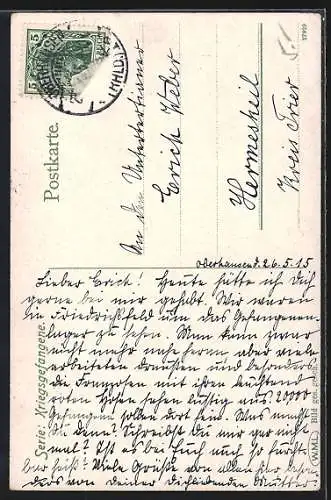 5 5
(RHLD.)
Postkarte.
An den Untertertianer
Erich Weber
Hermeskeil
Kreis Trier
Oberhausen d. 26.5.15
Lieber Erich! Heute hätte ich Dich
gerne bei mir gehabt. Wir waren
in Friedrichsfeld um das Gefangenen-
lager zu sehen. Man kann zwar
nicht mehr nahe heran aber viele
arbeiteten draußen und besonders
die Franzosen mit ihren leuchtend
roten Hosen sehen lustig aus. 20000
Gefangene sollen dort sein. Was machst
Du denn? Schreibst Du mir gar nicht
mal? Ist es bei Euch auch so furcht-
bar heiß? Viele Grüße von allen
von Deiner Dich liebenden Mutter
Serie: Kriegsgefangene.